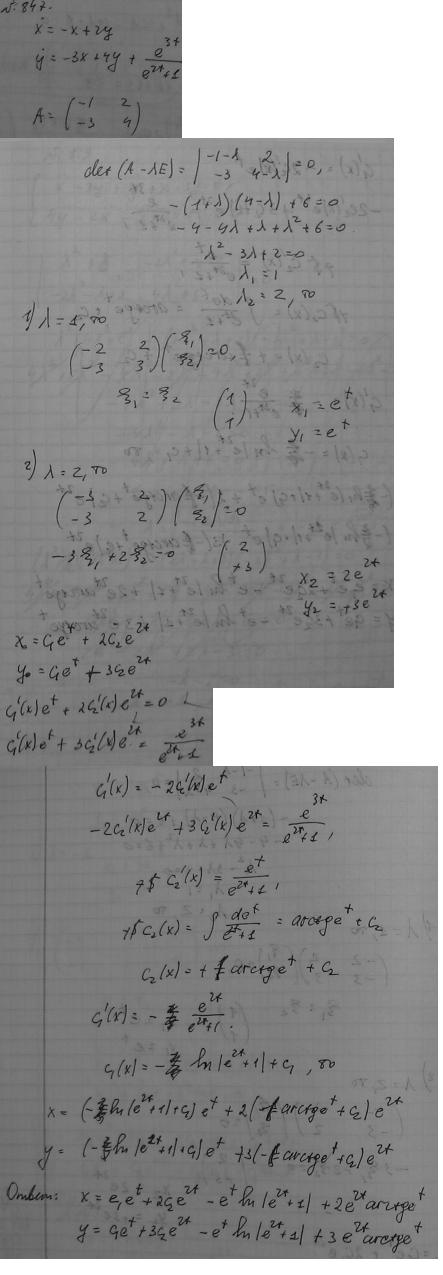 № 847.
ẋ = -x+2y
ẏ = -3x+4y + e^{3t}/(e^{2t}+1)
A = (-1 2; -3 4)
det (A-λE) = |-1-λ 2; -3 4-λ| = 0,
-(1+λ)(4-λ)+6=0
-4-4λ+λ+λ²+6=0
λ²-3λ+2=0
λ₁=1
λ₂=2, то
1) λ=1, то
(-2 2; -3 3)(ξ₁; ξ₂)=0,
ξ₁ = ξ₂ (1; 1) x₁ = e^t
y₁ = e^t
2) λ=2, то
(-3 2; -3 2)(ξ₁; ξ₂)=0
-3ξ₁+2ξ₂=0 (2; +3) x₂ = 2e^{2t}
y₂ = +3e^{2t}
x₀ = C₁e^t + 2C₂e^{2t}
y₀ = C₁e^t + 3C₂e^{2t}
C₁'(x)e^t + 2C₂'(x)e^{2t} = 0
C₁'(x)e^t + 3C₂'(x)e^{2t} = e^{3t}/(e^{2t}+1)
C₁'(x) = -2C₂'(x)e^t
-2C₂'(x)e^{2t} + 3C₂'(x)e^{2t} = e^{3t}/(e^{2t}+1),
C₂'(x) = e^t/(e^{2t}+1),
C₂(x) = ∫ de^t/(e^{2t}+1) = arctge^t + C₂
C₂(x) = + arctge^t + C₂
C₁'(x) = - e^{2t}/(e^{2t}+1).
C₁(x) = - ln|e^{2t}+1| + C₁, то
x = (- ln|e^{2t}+1|+C₁)e^t + 2( arctge^t + C₂)e^{2t}
y = (- ln|e^{2t}+1|+C₁)e^t +3( arctge^t + C₂)e^{2t}
Ответ: x = C₁e^t + 2C₂e^{2t} - e^t ln|e^{2t}+1| + 2e^{2t} arctge^t
y = C₁e^t + 3C₂e^{2t} - e^t ln|e^{2t}+1| + 3e^{2t} arctge^t